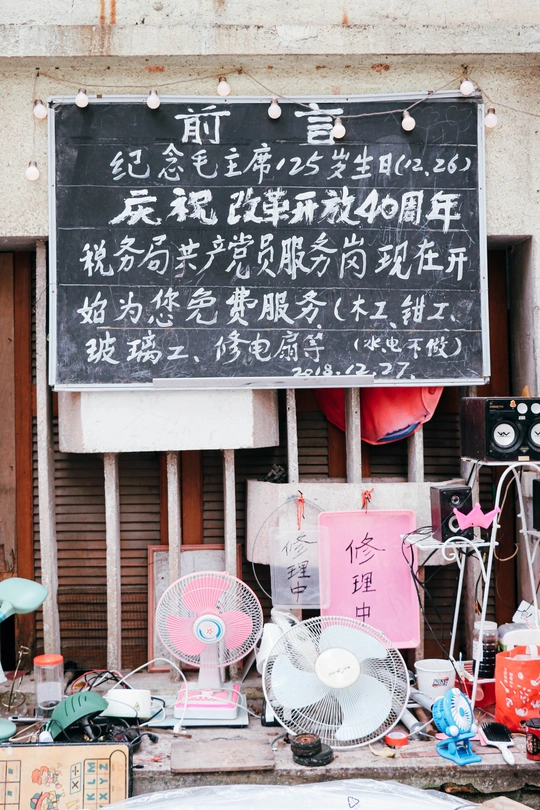 前言
纪念毛主席125岁生日(12.26)
庆祝改革开放40周年
税务局共产党员服务岗现在开
始为您免费服务(木工、钳工、
玻璃工、修电扇等 (水电不做)
2018.12.27.
修理中
修理中
KLM
XYZ